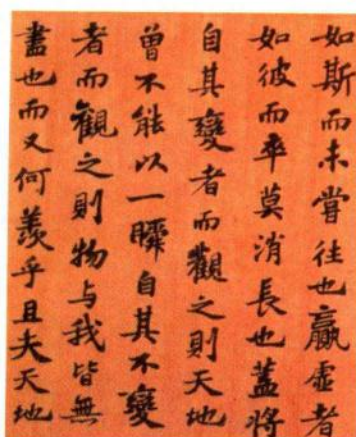 如斯而未嘗往也贏虛者
如彼而卒莫消長也蓋將
自其變者而觀之則天地
曾不能以一瞬自其不變
者而觀之則物与我皆無
盡也而又何羨乎且夫天地